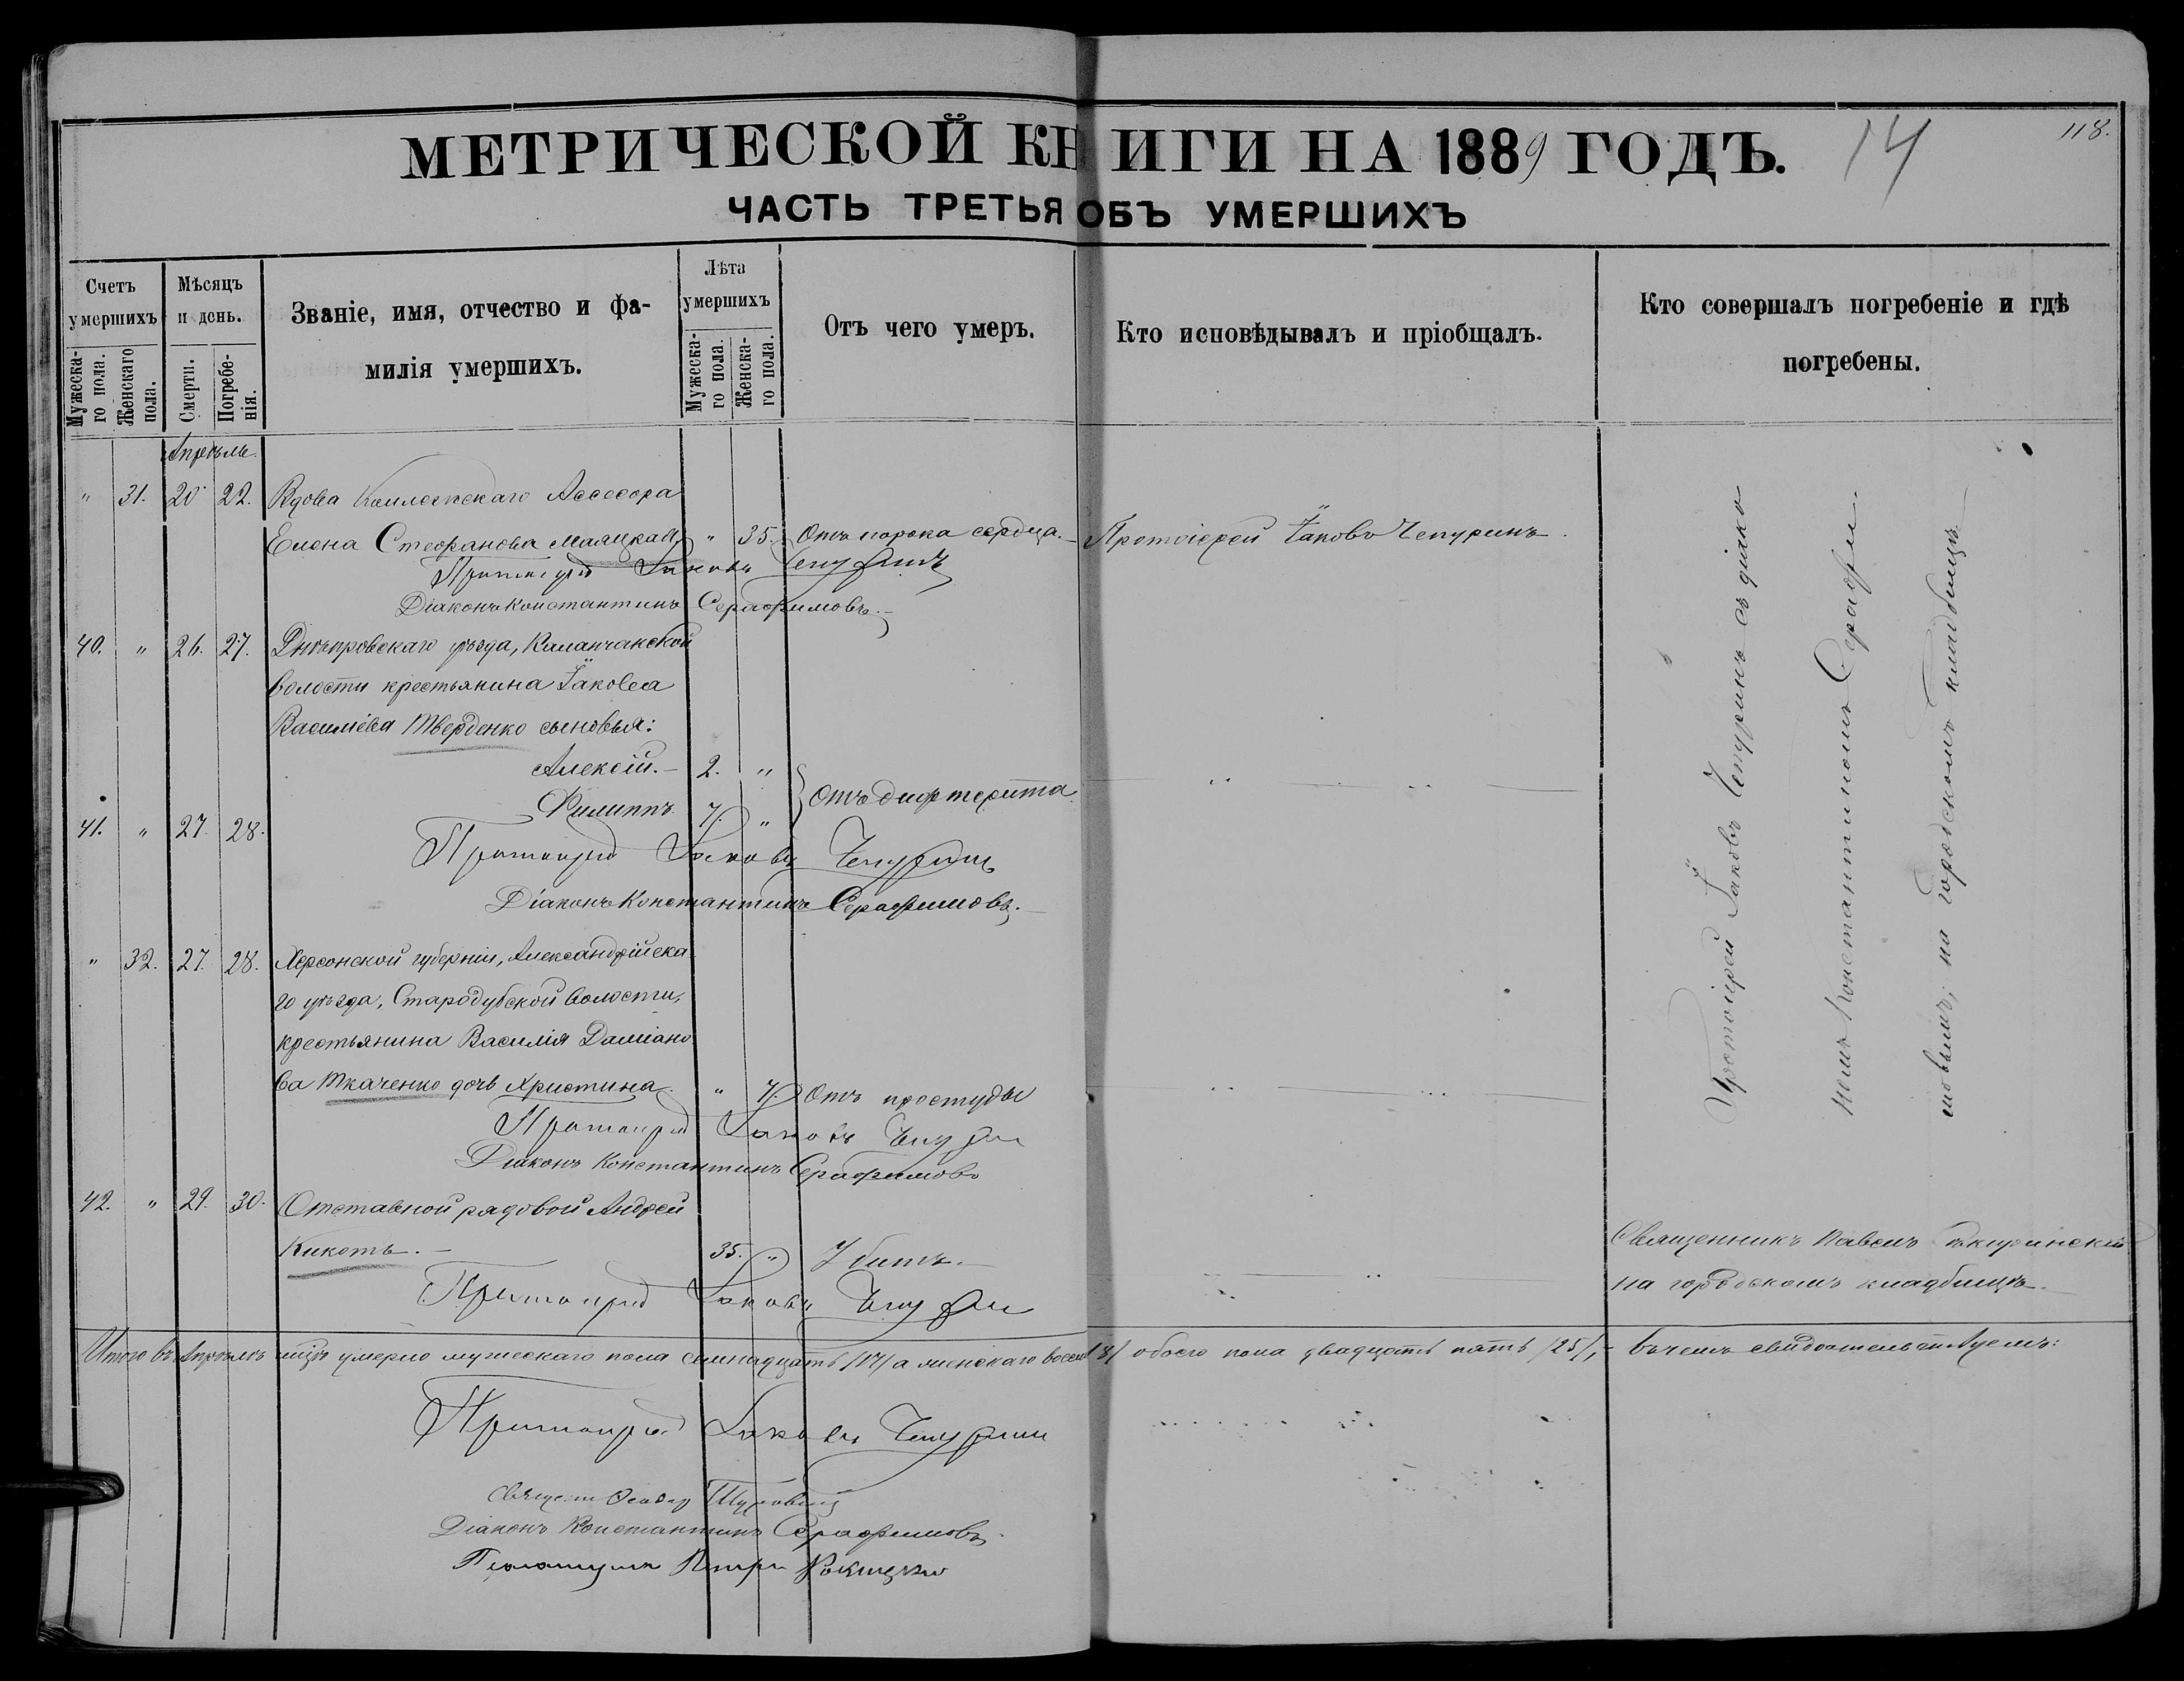 МЕТРИЧЕСКОЙ КНИГИ НА 1889 ГОДЪ.
14
118.
ЧАСТЬ ТРЕТЬЯ ОБЪ УМЕРШИХЪ
Счетъ умершихъ
Мужеска-го пола.
Женскаго пола.
Мѣсяцъ и день.
Смерти.
Погребе-нія.
Званіе, имя, отчество и фа-
милія умершихъ.
Лѣта умершихъ
Мужеска-го пола.
Женска-го пола.
Отъ чего умеръ.
Кто исповѣдывалъ и пріобщалъ.
Кто совершалъ погребеніе и гдѣ
погребены.
Апрѣль.
" 31. 20 22. Вдова Коллежскаго Ассесора
Елена Стефанова Маляцкая " 35. Отъ порока сердца. Протоіерей Іаковъ Чепуринъ.
Протоіерей Іаковъ Чепуринъ
Діаконъ Константинъ Серафимовъ.
40. " 26. 27. Днѣпровскаго уѣзда, Каланчакской
волости крестьянина Іакова
Василіева Тверденко сыновья:
Алексій. 2. "
Отъ дифтерита
41. " 27. 28. Филиппъ. 7. "
Протоіерей Іаковъ Чепуринъ
Діаконъ Константинъ Серафимовъ.
" 32. 27. 28. Херсонской губерніи, Александрійска
го уѣзда, Стародубской волости,
крестьянина Василія Даміано
ва Ткаченко дочь Христина. " 7. Отъ простуды
Протоіерей Іаковъ Чепуринъ
Діаконъ Константинъ Серафимовъ
42. " 29. 30. Отставной рядовой Андрей
Кикоть. 35. " Убитъ.
Протоіерей Іаковъ Чепуринъ
Протоіерей Іаковъ Чепуринъ съ діако
номъ Константиномъ Серафи
мовымъ; на городскомъ кладбищѣ
Священникъ Павелъ
на городскомъ кладбищѣ.
Итого въ Апрѣлѣ мцѣ умерло мужескаго пола семнадцать /17/ а женскаго восемь /8/ обоего пола двадцать пять /25/, въ чемъ свидѣтельствуемъ:
Протоіерей Іаковъ Чепуринъ
Діаконъ Константинъ Серафимовъ.